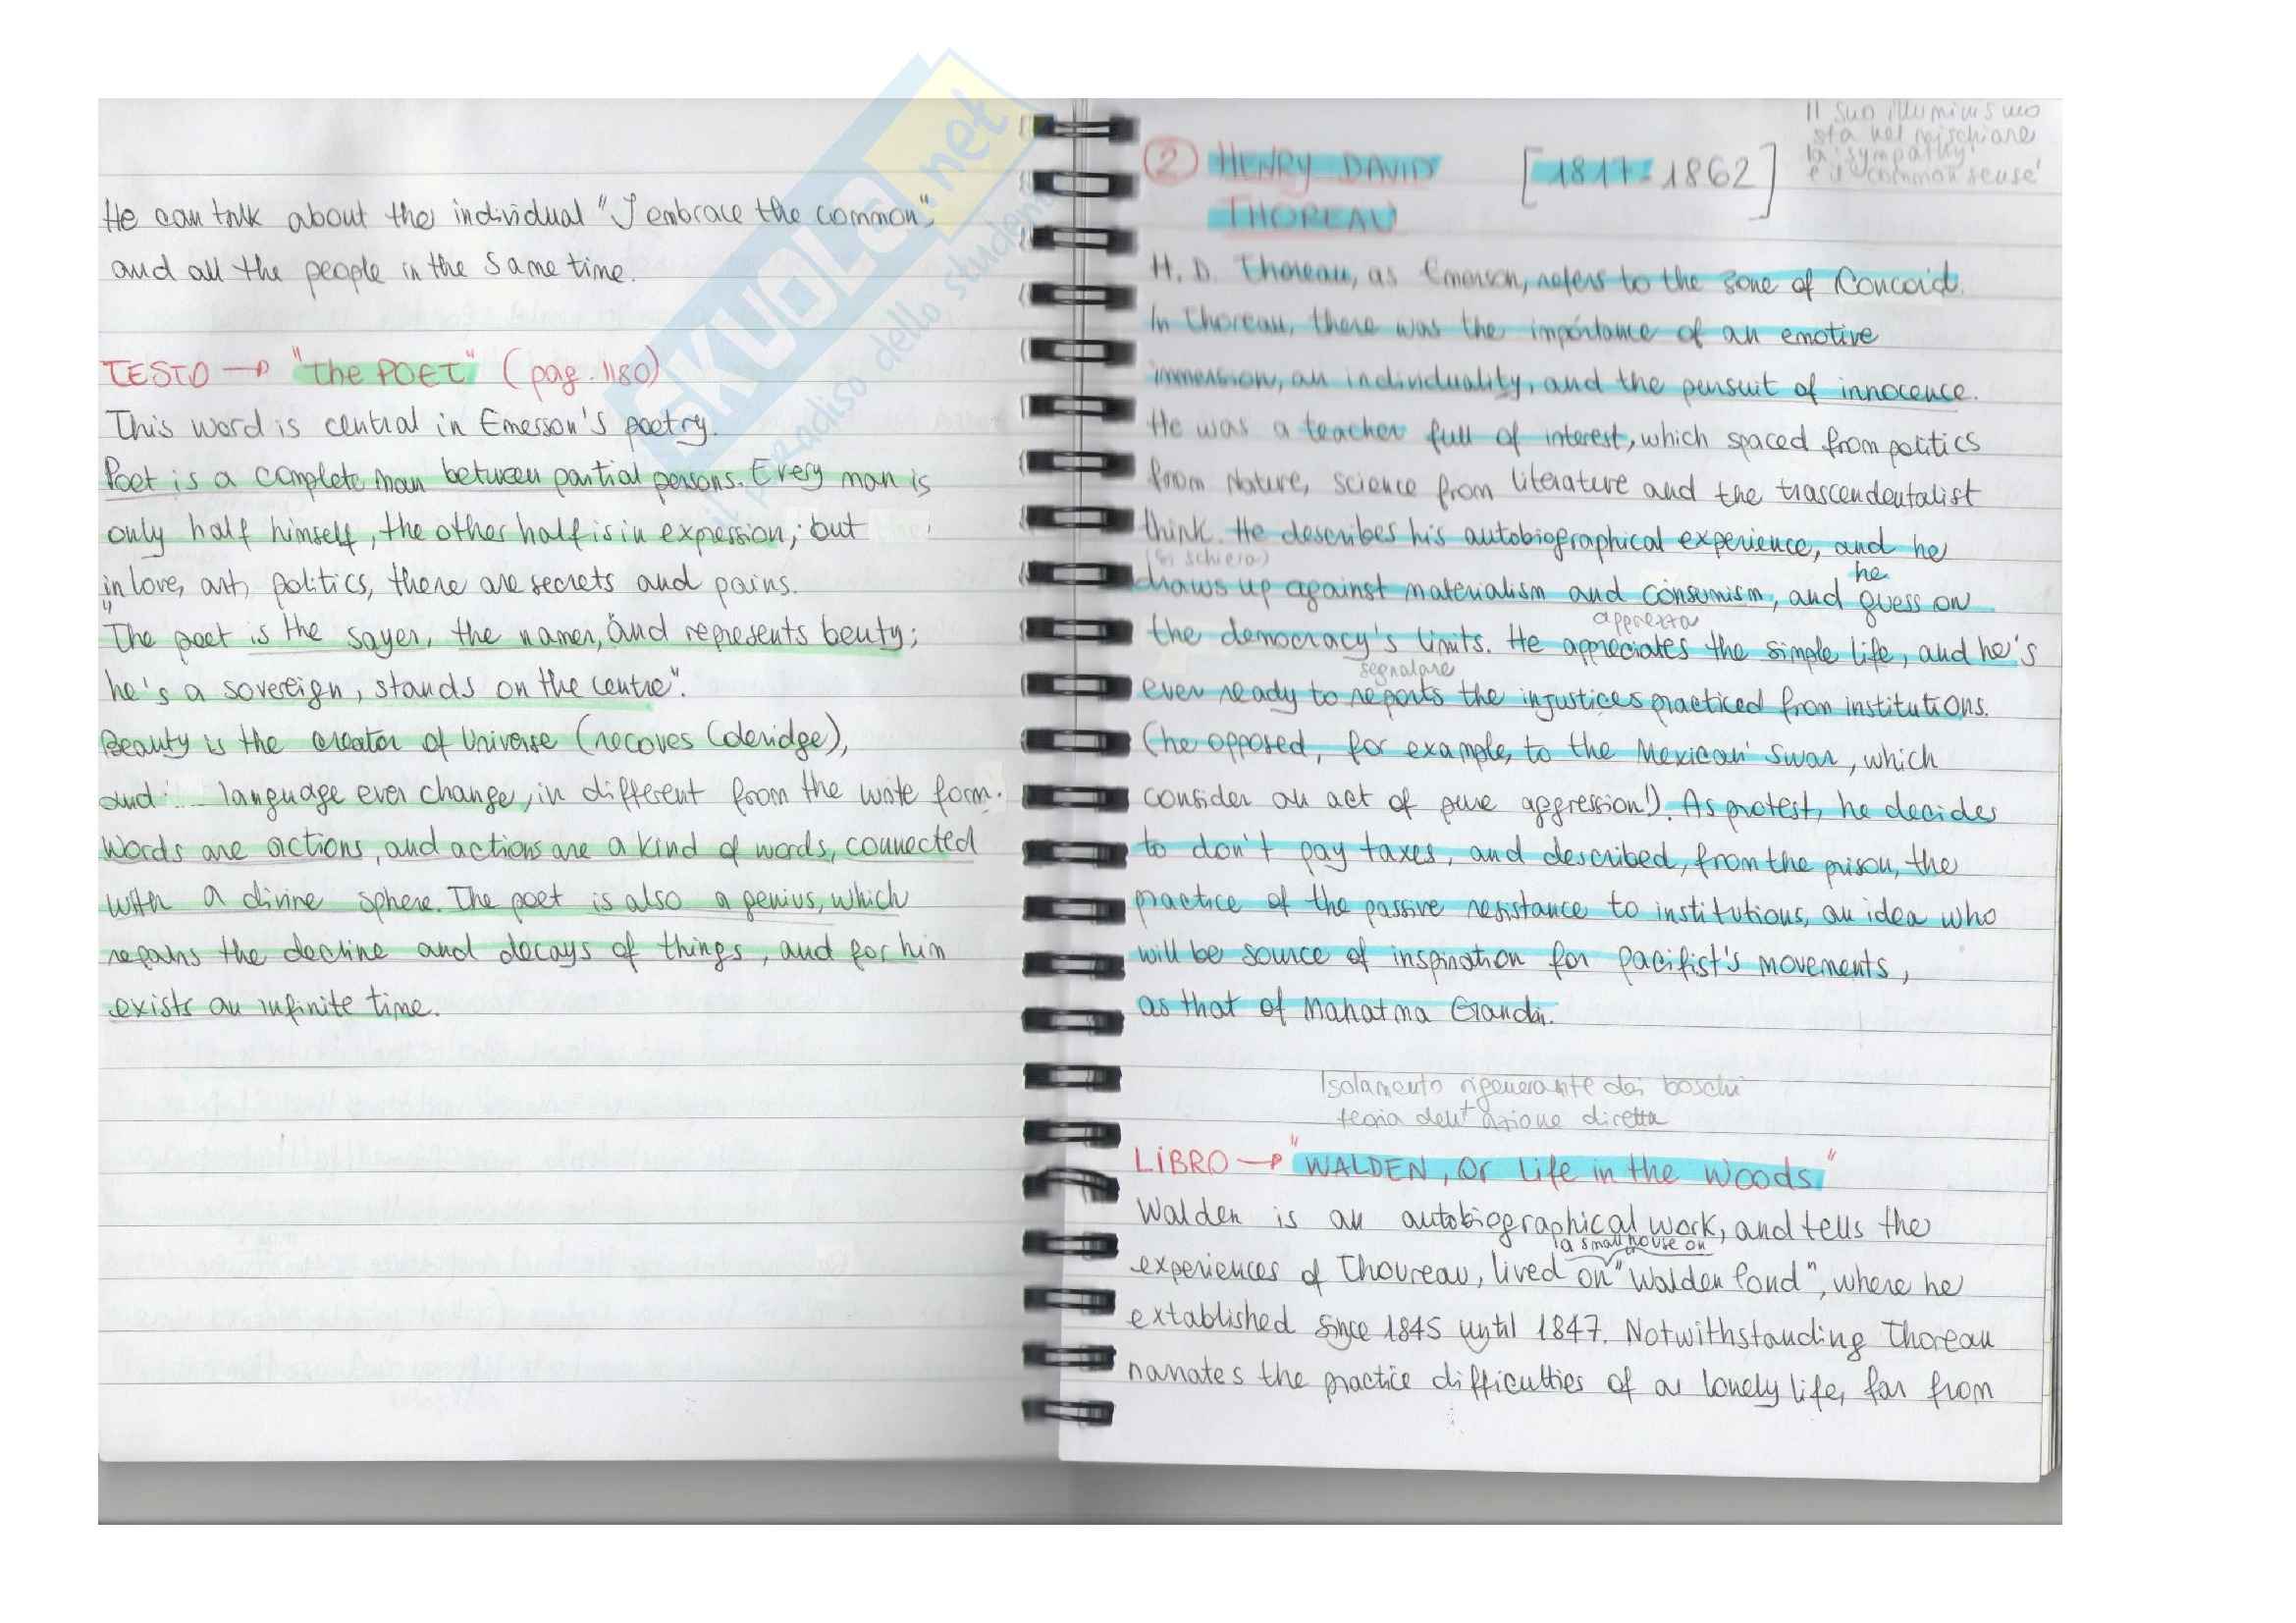 He can talk about the individual "I embrace the common",
and all the people in the same time.
TESTO → "The POET" (pag. 1180)
This word is central in Emerson's poetry.
Poet is a complete man between partial persons. Every man is
only half himself, the other half is in expression; but
in love, art, politics, there are secrets and pains.
"The poet is the sayer, the namer, and represents beuty;
he's a sovereign, stands on the centre".
Beauty is the creator of Universe (recoves Coleridge),
and language ever change, in different from the write form.
Words are actions, and actions are a kind of words, connected
with a divine sphere. The poet is also a genius, which
repairs the decline and decays of things, and for him
exists an infinite time.
SKUOLA.net
il paradiso dello studente
Il suo illuminismo
sta nel mischiare
la 'sympathy'
e il 'common sense'
② HENRY DAVID [1817-1862]
THOREAU
H. D. Thoreau, as Emerson, refers to the zone of Concord.
In Thoreau, there was the importance of an emotive
immersion, an individuality, and the pursuit of innocence.
He was a teacher full of interest, which spaced from politics
from Nature, science from literature and the trascendentalist
think. He describes his autobiographical experience, and he
(si schiera)
draws up against materialism and consumism, and he guess on
apprezza
the democracy's limits. He appreciates the simple life, and he's
segnalare
ever ready to reports the injustices practiced from institutions.
(he opposed, for example, to the Mexican's war, which
consider an act of pure aggression!). As protest, he decides
to don't pay taxes, and described, from the prison, the
practice of the passive resistance to institutions, an idea who
will be source of inspiration for pacifist's movements,
as that of Mahatma Gandhi.
Isolamento rigenerante dei boschi
teoria dell'azione diretta
LIBRO → "WALDEN, Or Life in the Woods"
Walden is an autobiographical work, and tells the
a small house on
experiences of Thoureau, lived on "Walden Pond", where he
extablished since 1845 until 1847. Notwithstanding Thoreau
narrates the practice difficulties of a lonely life, far from